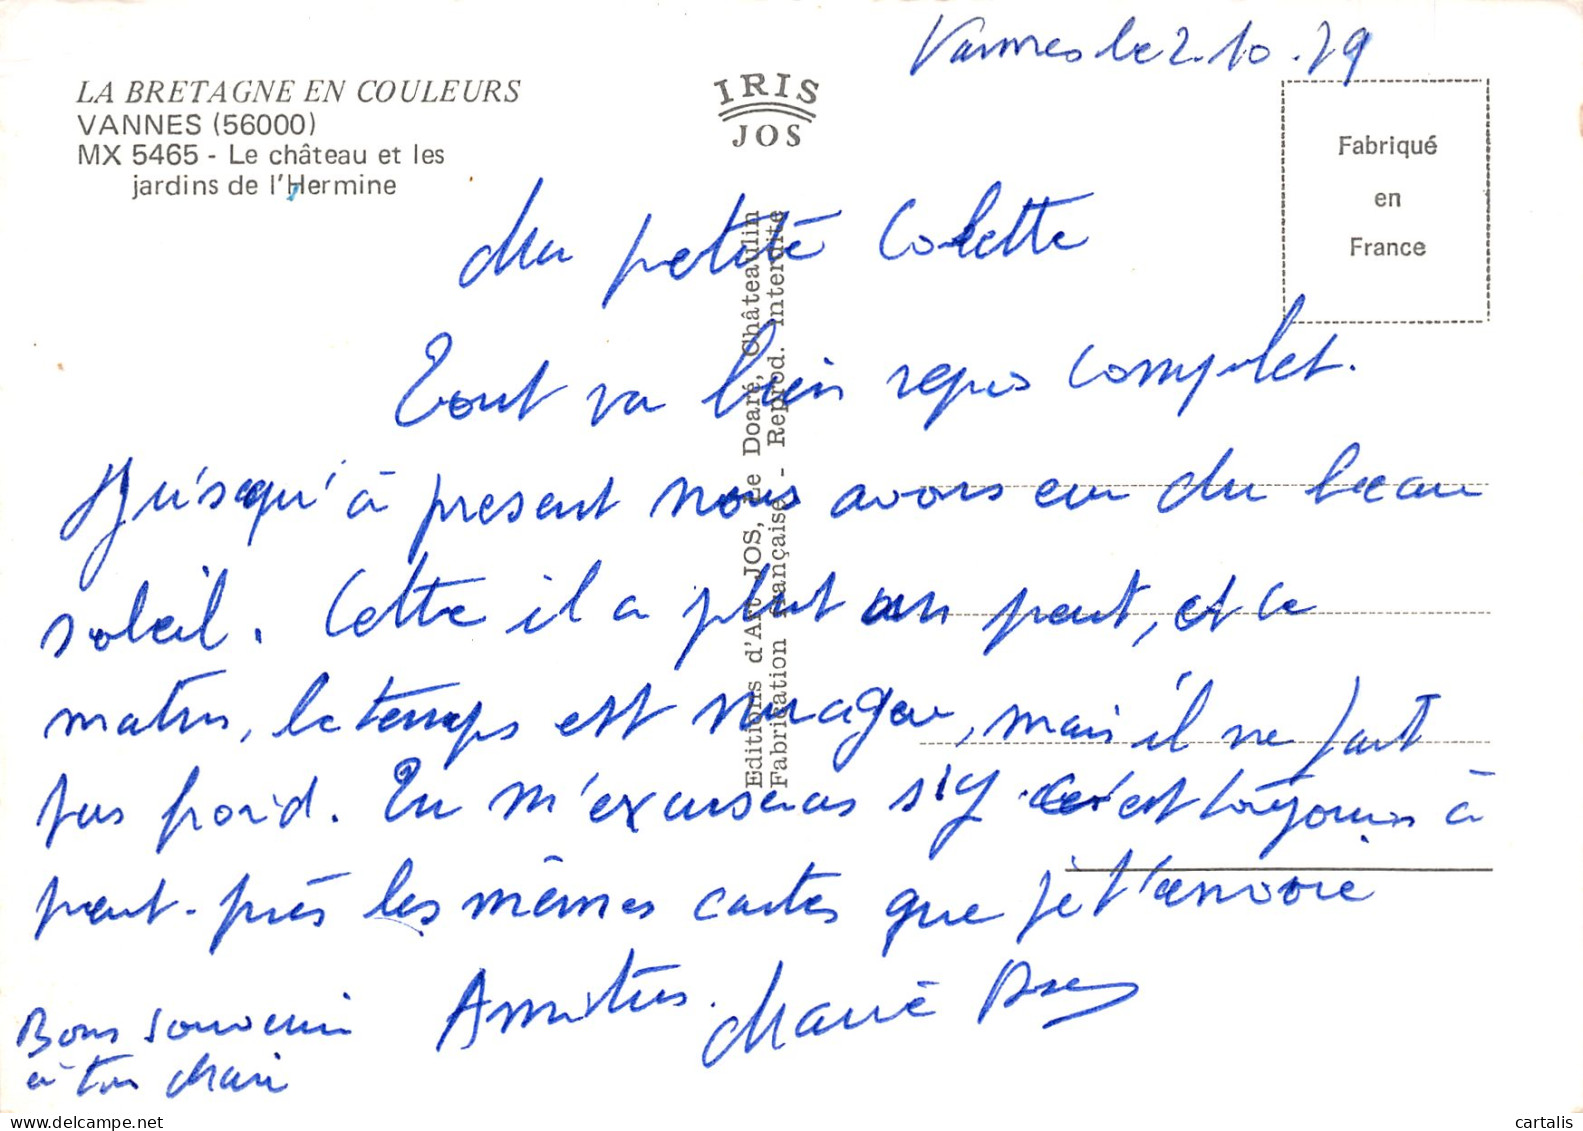 Vannes le 2.10.79
LA BRETAGNE EN COULEURS
VANNES (56000)
MX 5465 - Le château et les
jardins de l'Hermine
IRIS
JOS
Fabriqué
en
France
Editions d'Art JOS, Le Doaré, Châteaulin
Fabrication française - Reprod. interdite
Ma petite Colette
Tout va bien repos complet.
Jusqu'à present nous avons eu du beau
soleil. Cette il a plut un peut, et ce
matin, le temps est nuageu, mais il ne fait
pas froid. Tu m'excuseras s'y c'est toujours à
peut-près les mêmes cartes que je t'envoie
Amitiés. Marie
Bons souvenir
à ton Mari
cartalis
delcampe.net